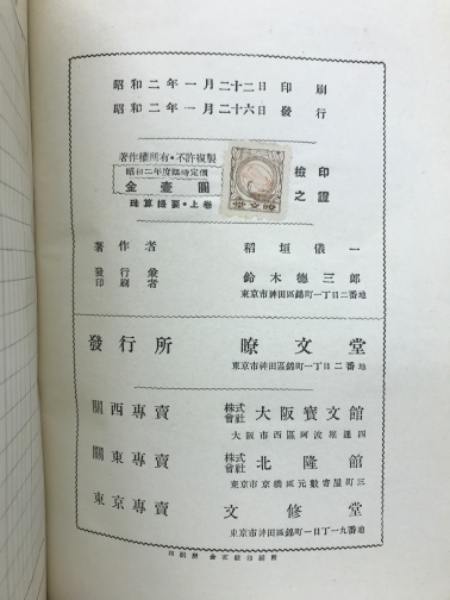 昭和二年一月二十二日印刷
昭和二年一月二十六日發行
著作權所有・不許複製
昭和二年度臨時定價
金壹圓
珠算提要・上卷
檢印
之證
著作者 稻垣儀一
發行兼
印刷者 鈴木德三郎
東京市神田區錦町一丁目二番地
發行所 瞭文堂
東京市神田區錦町一丁目二番地
關西專賣 株式會社 大阪寶文館
大阪市西區阿波堀通四
關東專賣 株式會社 北隆館
東京市京橋區元數寄屋町三
東京專賣 文修堂
東京市神田區錦町一目丁一九番地